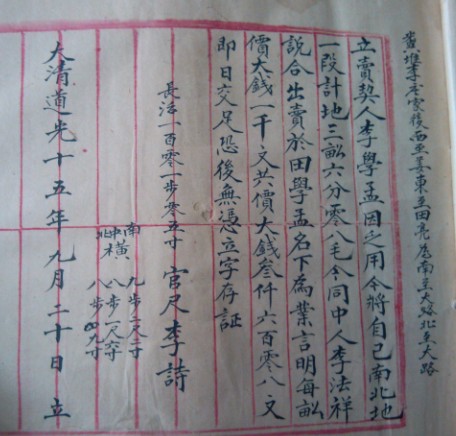 黄堆李家窑後西至姜東至田亮為南至大路北至大路
立賣契人李學孟因乏用今將自己南北地
一段計地三畝六分零八毛今同中人李法祥
說合出賣於田學孟名下為業言明每畝
價大錢一千文共價大錢叁仟六百零八文
即日交足恐後無憑立字存証
長活一百零一步零五寸 官尺李詩
南 九步二尺二寸
中橫 八步一尺六寸
北 八步 九寸
大清道光十五年九月二十日立